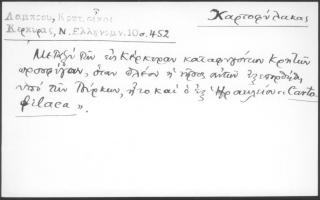 Λαμπρου, Κρητ. οἶκοι
Κερκυρας, Ν. Ελληνομν. 10 σ. 452
Χαρτοφύλακας
Μεταξὺ τῶν εἰς Κέρκυραν καταφυγόντων Κρητῶν
προσφύγων, ὅταν πλέον ἡ νῆσος αὐτῶν
ὑπὸ τῶν Τούρκων, ἦτο καὶ ὁ ἐξ Ἡρακλείου « Carto
filaca ».